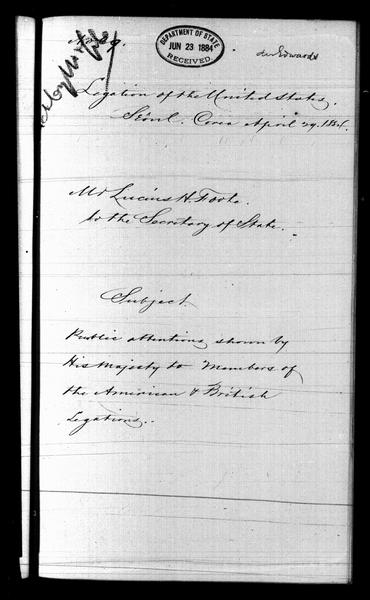 DEPARTMENT OF STATE
JUN 23 1884
RECEIVED
Legation of the United States,
Séoul. Corea April 29. 1884.
Mr Lucius H. Foote.
to the Secretary of State.
Subject
Public attentions shown by
His Majesty to Members of
the American & British
Legations.